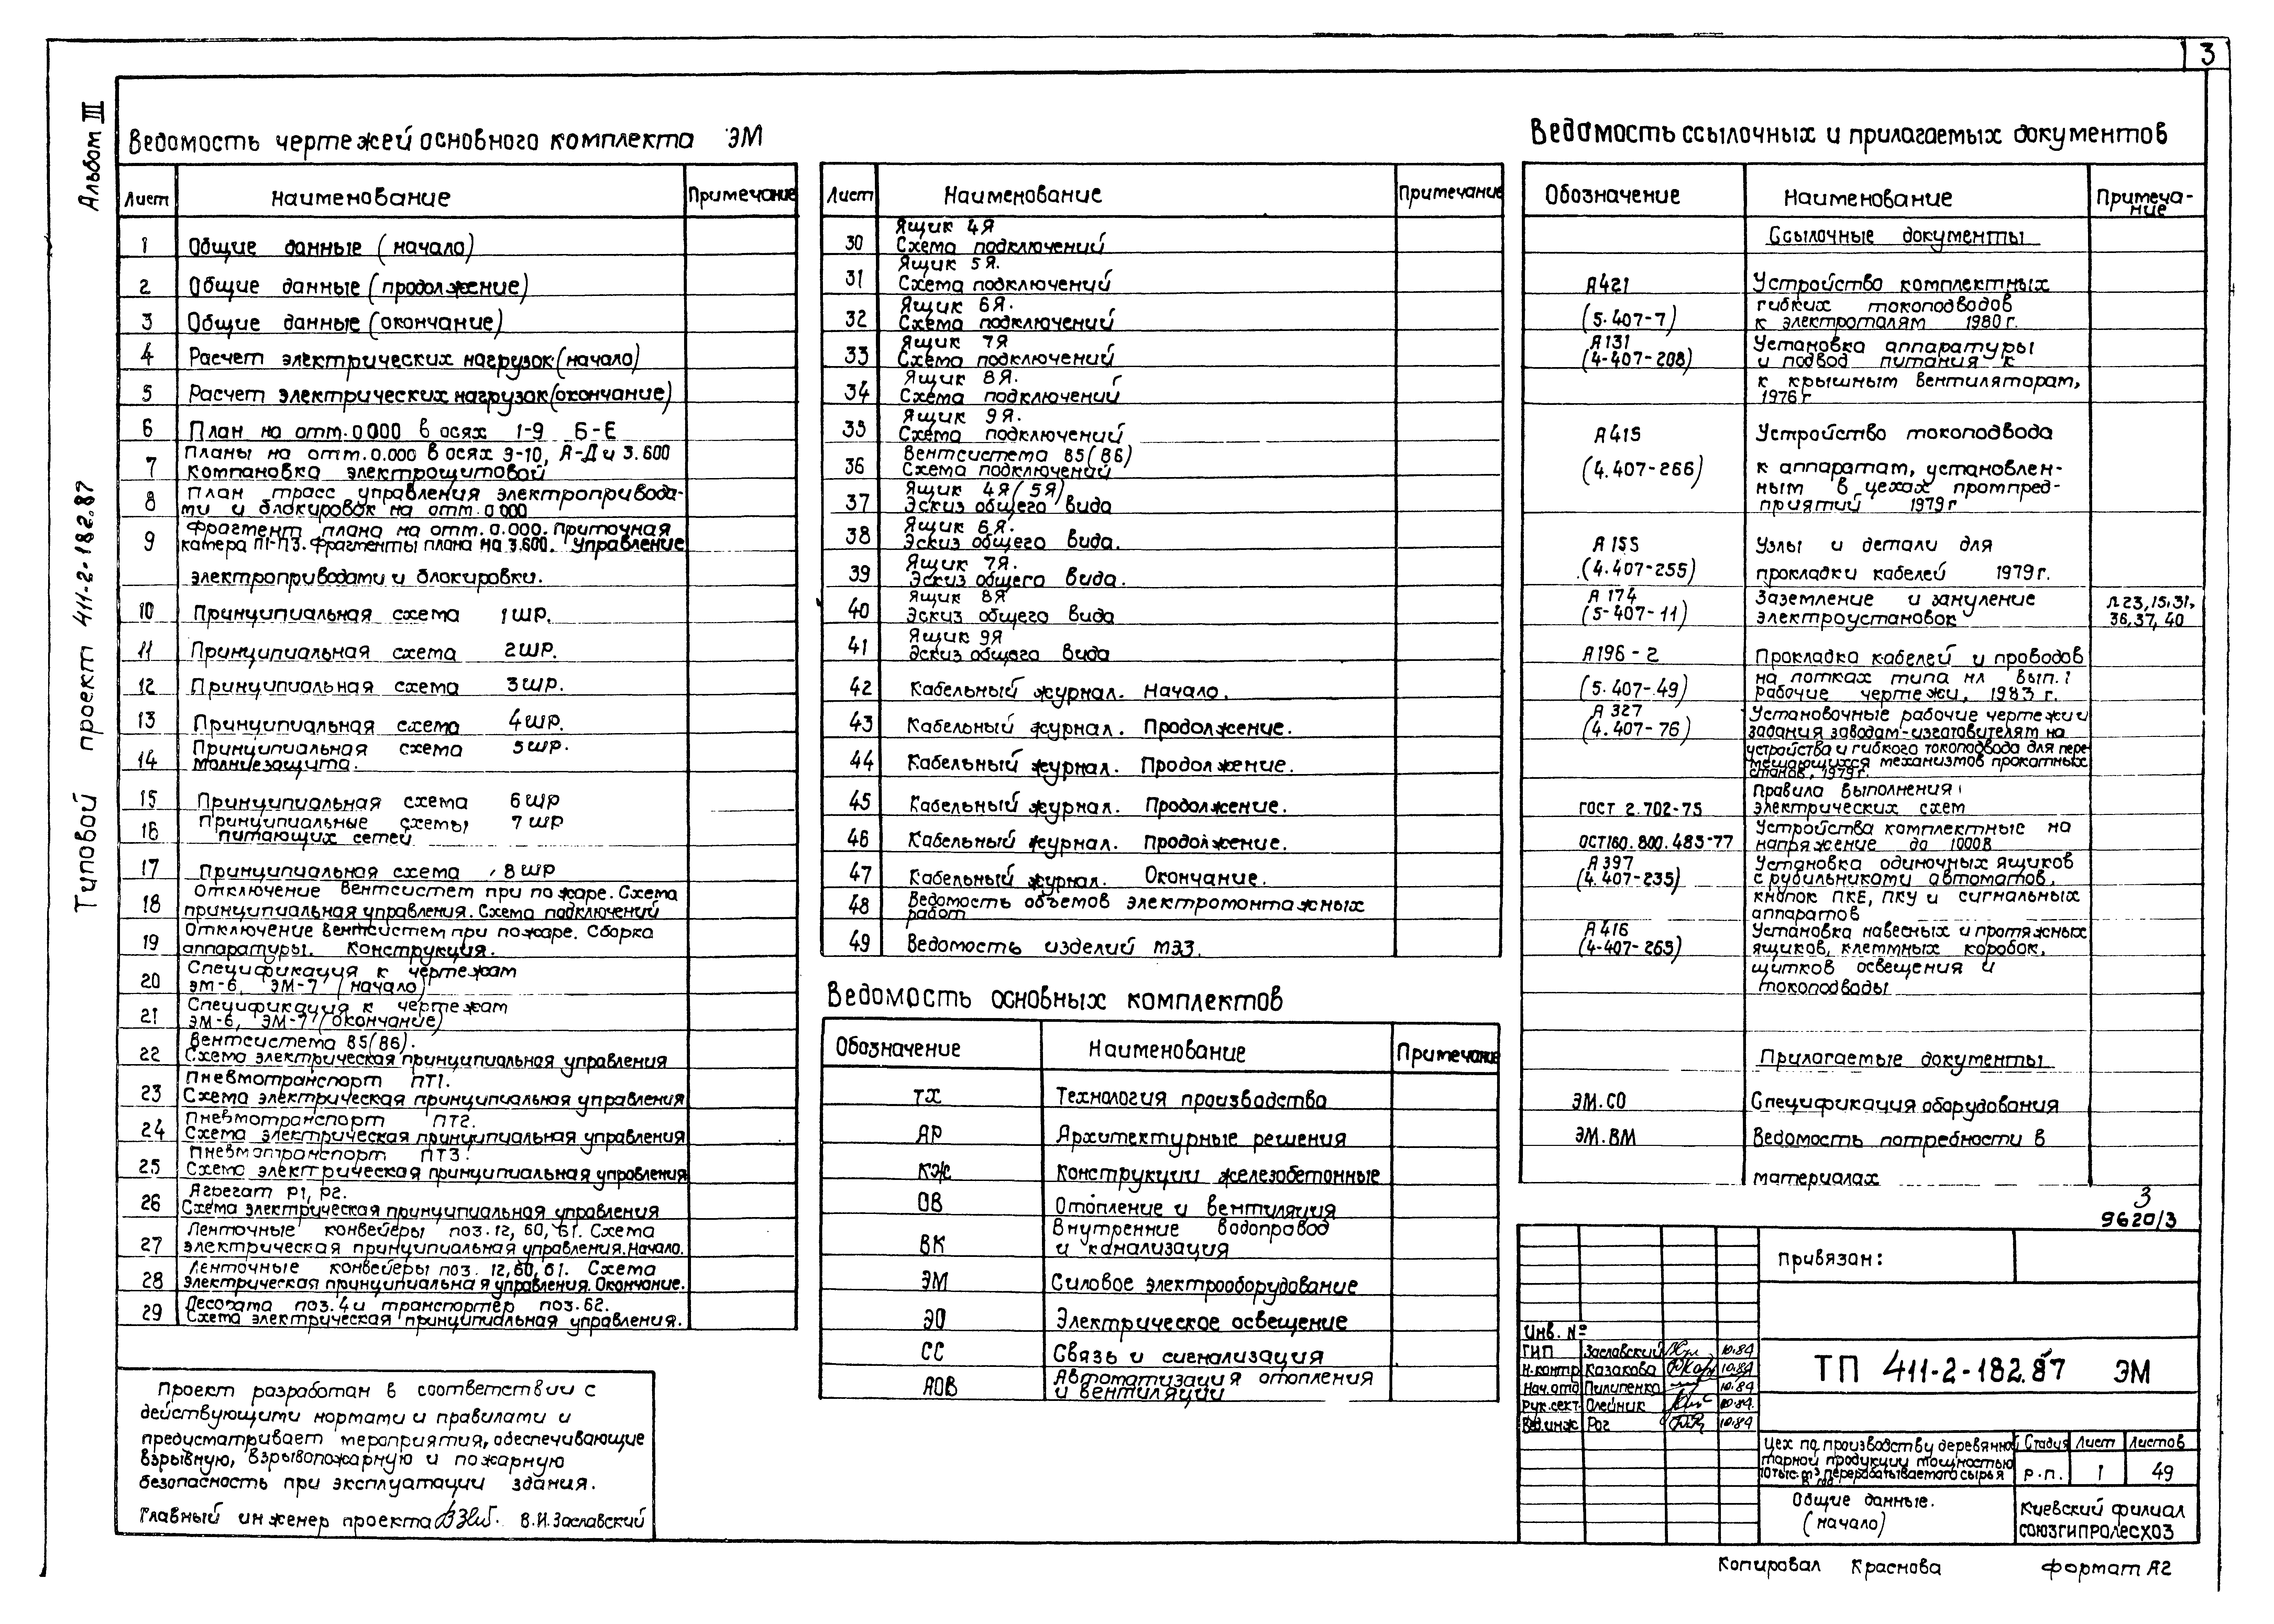 3
Альбом III
Типовой проект 411-2-182.87
Ведомость чертежей основного комплекта ЭМ
Лист Наименование Примечание
1 Общие данные (начало)
2 Общие данные (продолжение)
3 Общие данные (окончание)
4 Расчет электрических нагрузок (начало)
5 Расчет электрических нагрузок (окончание)
6 План на отм. 0000 в осях 1-9 Б-Е
Планы на отм. 0.000 в осях 9-10, А-Д и 3.600
7 Компановка электрощитовой
План трасс управления электропривода-
8 ми и блокировок на отм. 0.000
Фрагмент плана на отм. 0.000. Приточная
9 камера П1-П3. Фрагменты плана на 3.600. Управление
электроприводами и блокировки.
10 Принципиальная схема 1шр.
11 Принципиальная схема 2шр.
12 Принципиальная схема 3шр.
13 Принципиальная схема 4шр.
Принципиальная схема 5шр.
14 Молниезащита.
15 Принципиальная схема 6шр
Принципиальные схемы 7шр
16 питающих сетей
17 Принципиальная схема 8шр
Отключение вентсистем при пожаре. Схема
18 принципиальная управления. Схема подключений
Отключение вентсистем при пожаре. Сборка
19 аппаратуры. Конструкция.
Спецификация к чертежам
20 ЭМ-6, ЭМ-7 (начало)
Спецификация к чертежам
21 ЭМ-6, ЭМ-7 (окончание)
Вентсистема В5(В6).
22 Схема электрическая принципиальная управления
Пневмотранспорт ПТ1.
23 Схема электрическая принципиальная управления
Пневмотранспорт ПТ2.
24 Схема электрическая принципиальная управления
Пневмотранспорт ПТ3.
25 Схема электрическая принципиальная управления
Агрегат Р1, Р2.
26 Схема электрическая принципиальная управления
Ленточные конвейеры поз. 12, 60, 61. Схема
27 электрическая принципиальная управления. Начало.
Ленточные конвейеры поз. 12, 60, 61. Схема
28 электрическая принципиальная управления. Окончание.
поз. 4 и транспортер поз. 62.
29 Схема электрическая принципиальная управления.
Проект разработан в соответствии с
действующими нормами и правилами и
предусматривает мероприятия, обеспечивающие
взрывную, взрывопожарную и пожарную
безопасность при эксплуатации здания.
Главный инженер проекта В.И. Заславский
Лист Наименование Примечание
Ящик 4Я
30 Схема подключений
Ящик 5Я.
31 Схема подключений
Ящик 6Я.
32 Схема подключений
Ящик 7Я
33 Схема подключений
Ящик 8Я.
34 Схема подключений
Ящик 9Я.
35 Схема подключений
Вентсистема В5(В6)
36 Схема подключений
Ящик 4Я(5Я)
37 Эскиз общего вида
Ящик 6Я.
38 Эскиз общего вида.
Ящик 7Я.
39 Эскиз общего вида.
Ящик 8Я
40 Эскиз общего вида
Ящик 9Я
41 Эскиз общего вида
42 Кабельный журнал. Начало.
43 Кабельный журнал. Продолжение.
44 Кабельный журнал. Продолжение.
45 Кабельный журнал. Продолжение.
46 Кабельный журнал. Продолжение.
47 Кабельный журнал. Окончание.
Ведомость объемов электромонтажных
48 работ
49 Ведомость изделий МЭЗ.
Ведомость основных комплектов
Обозначение Наименование Примечание
ТХ Технология производства
АР Архитектурные решения
КЖ Конструкции железобетонные
ОВ Отопление и вентиляция
Внутренние водопровод
ВК и канализация
ЭМ Силовое электрооборудование
ЭО Электрическое освещение
СС Связь и сигнализация
Автоматизация отопления
АОВ и вентиляции
Ведомость ссылочных и прилагаемых документов
Обозначение Наименование Примеча-
ние
Ссылочные документы
А421 Устройство комплектных
гибких токоподводов
(5.407-7) к электроталям 1980г.
А131 Установка аппаратуры
(4-407-208) и подвод питания к
к крышным вентиляторам,
1976г
А415 Устройство токоподвода
(4.407-266) к аппаратам, установлен-
ным в цехах промпред-
приятий 1979г
А155 Узлы и детали для
(4.407-255) прокладки кабелей 1979г.
А174 Заземление и зануление л 23,15,31,
(5-407-11) электроустановок 36,37,40
А196-2 Прокладка кабелей и проводов
на лотках типа НЛ вып. 1
(5.407-49) рабочие чертежи, 1983 г.
А 327 Установочные рабочие чертежи и
(4.407-76) задания заводам-изготовителям на
устройства и гибкого токоподвода для пере-
мещающихся механизмов прокатных
станов, 1979г.
Правила выполнения
ГОСТ 2.702-75 электрических схем
Устройства комплектные на
ОСТ160.800.485-77 напряжение до 1000В
А397 Установка одиночных ящиков
(4.407-235) с рубильниками автоматов,
кнопок ПКЕ, ПКУ и сигнальных
аппаратов
А416 Установка навесных и протяжных
(4-407-265) ящиков, клеммных коробок,
щитков освещения и
токоподводы
Прилагаемые документы
ЭМ.СО Спецификация оборудования
ЭМ.ВМ Ведомость потребности в
материалах
3
9620/3
Привязан:
Инв. №
ГИП Заславский 10.84
Н.контр Казакова 10.84
Нач.отд Пилипенко 10.84
Рук.сект. Олейник 10.84.
Вед.инж Рог 10.84
ТП 411-2-182.87 ЭМ
Цех по производству деревянной
тарной продукции мощностью
10 тыс. м³ в год перерабатываемого сырья
Стадия Лист Листов
Р.П. 1 49
Общие данные.
(начало)
Киевский филиал
СОЮЗГИПРОЛЕСХОЗ
Копировал Краснова Формат А2